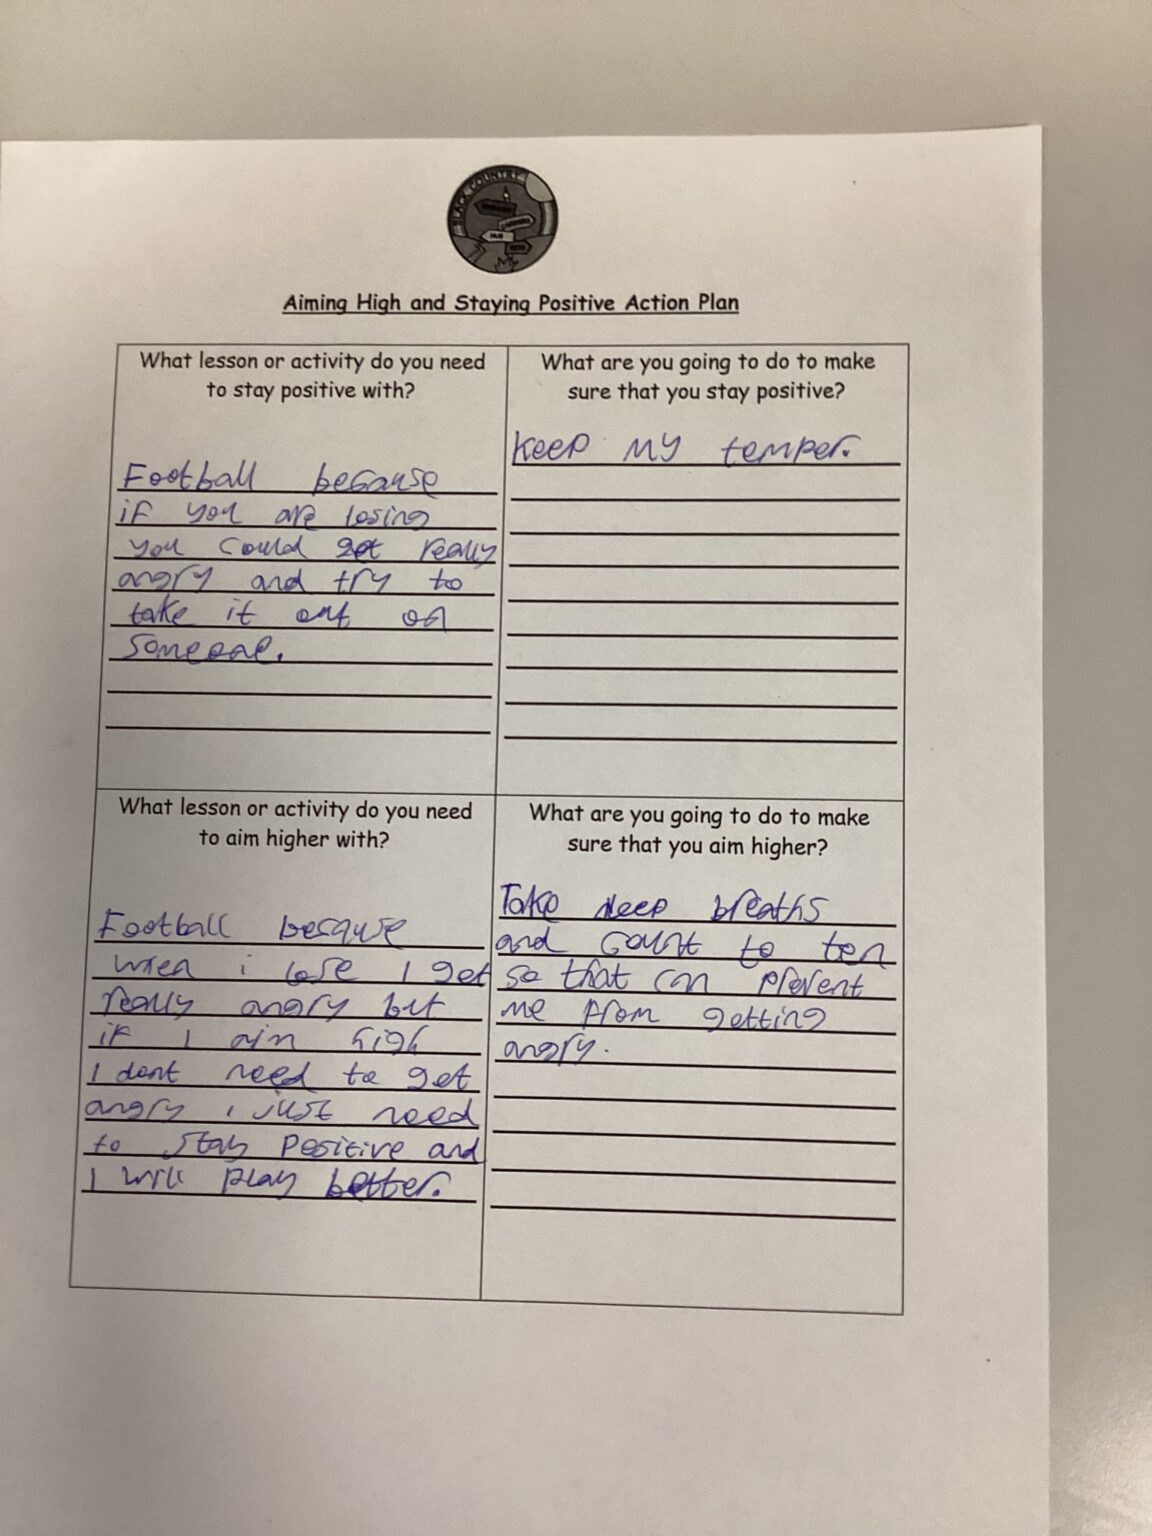 BLACK COUNTRY
Aiming High and Staying Positive Action Plan
What lesson or activity do you need
to stay positive with?
Football because
if you are losing
you could get really
angry and try to
take it out on
someone.
What are you going to do to make
sure that you stay positive?
Keep my temper.
What lesson or activity do you need
to aim higher with?
Football because
when i lose I get
really angry but
if I aim high
I dont need to get
angry i just need
to stay positive and
I will play better.
What are you going to do to make
sure that you aim higher?
Take deep breaths
and count to ten
so that can prevent
me from getting
angry.